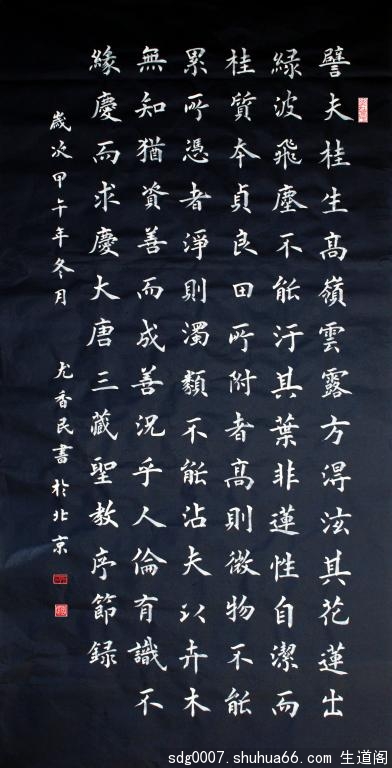 譬夫桂生高嶺雲露方得泫其花蓮出
綠波飛塵不能汙其葉非蓮性自潔而
桂質本貞良由所附者高則微物不能
累所憑者淨則濁類不能沾夫以卉木
無知猶資善而成善況乎人倫有識不
緣慶而求慶大唐三藏聖教序節錄
歲次甲午年冬月 尤香民書於北京
sdg0007.shuhua66.com 生道阁